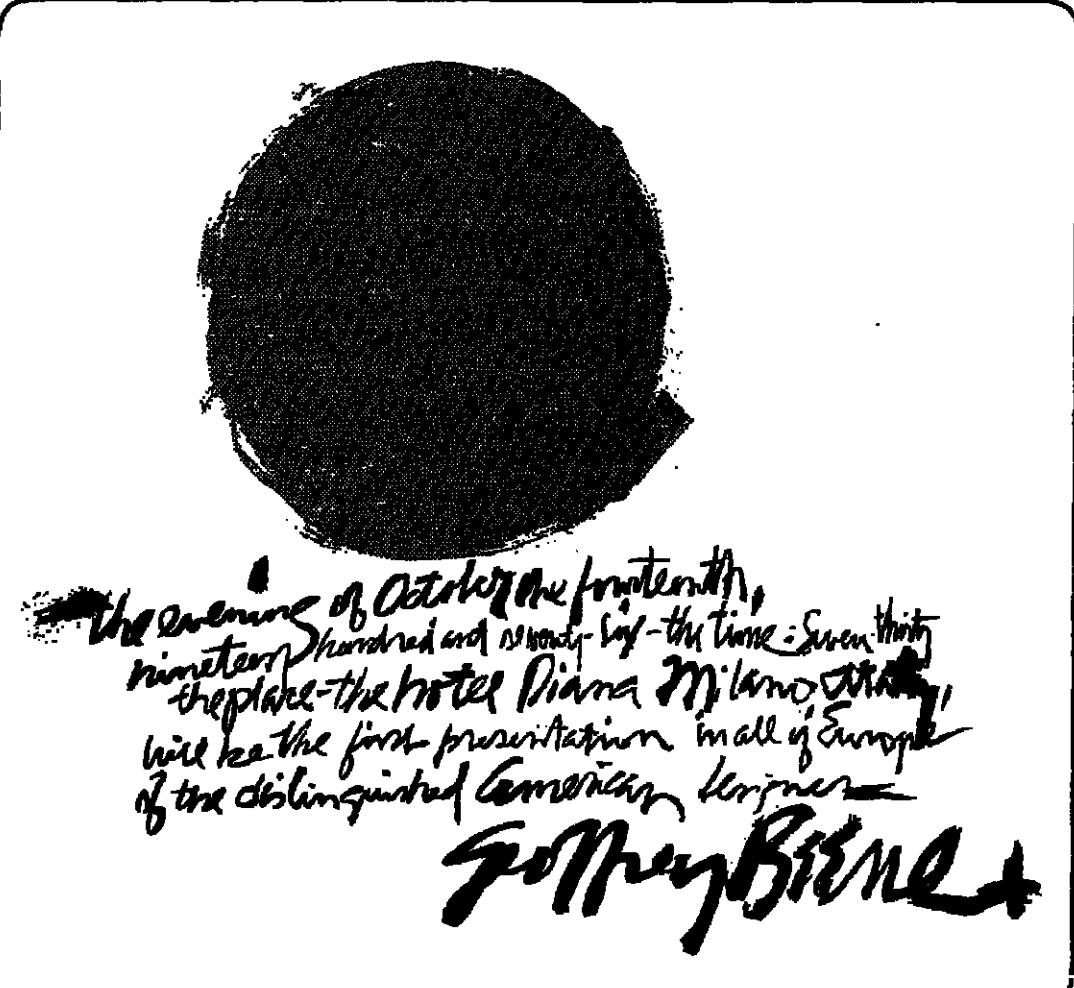 the evening of October the fourteenth,
nineteen hundred and seventy-six - the time: Seven thirty
the place - the hotel Diana Milano Italy,
will be the first presentation in all of Europe
of the distinguished American designer
Geoffrey Beene